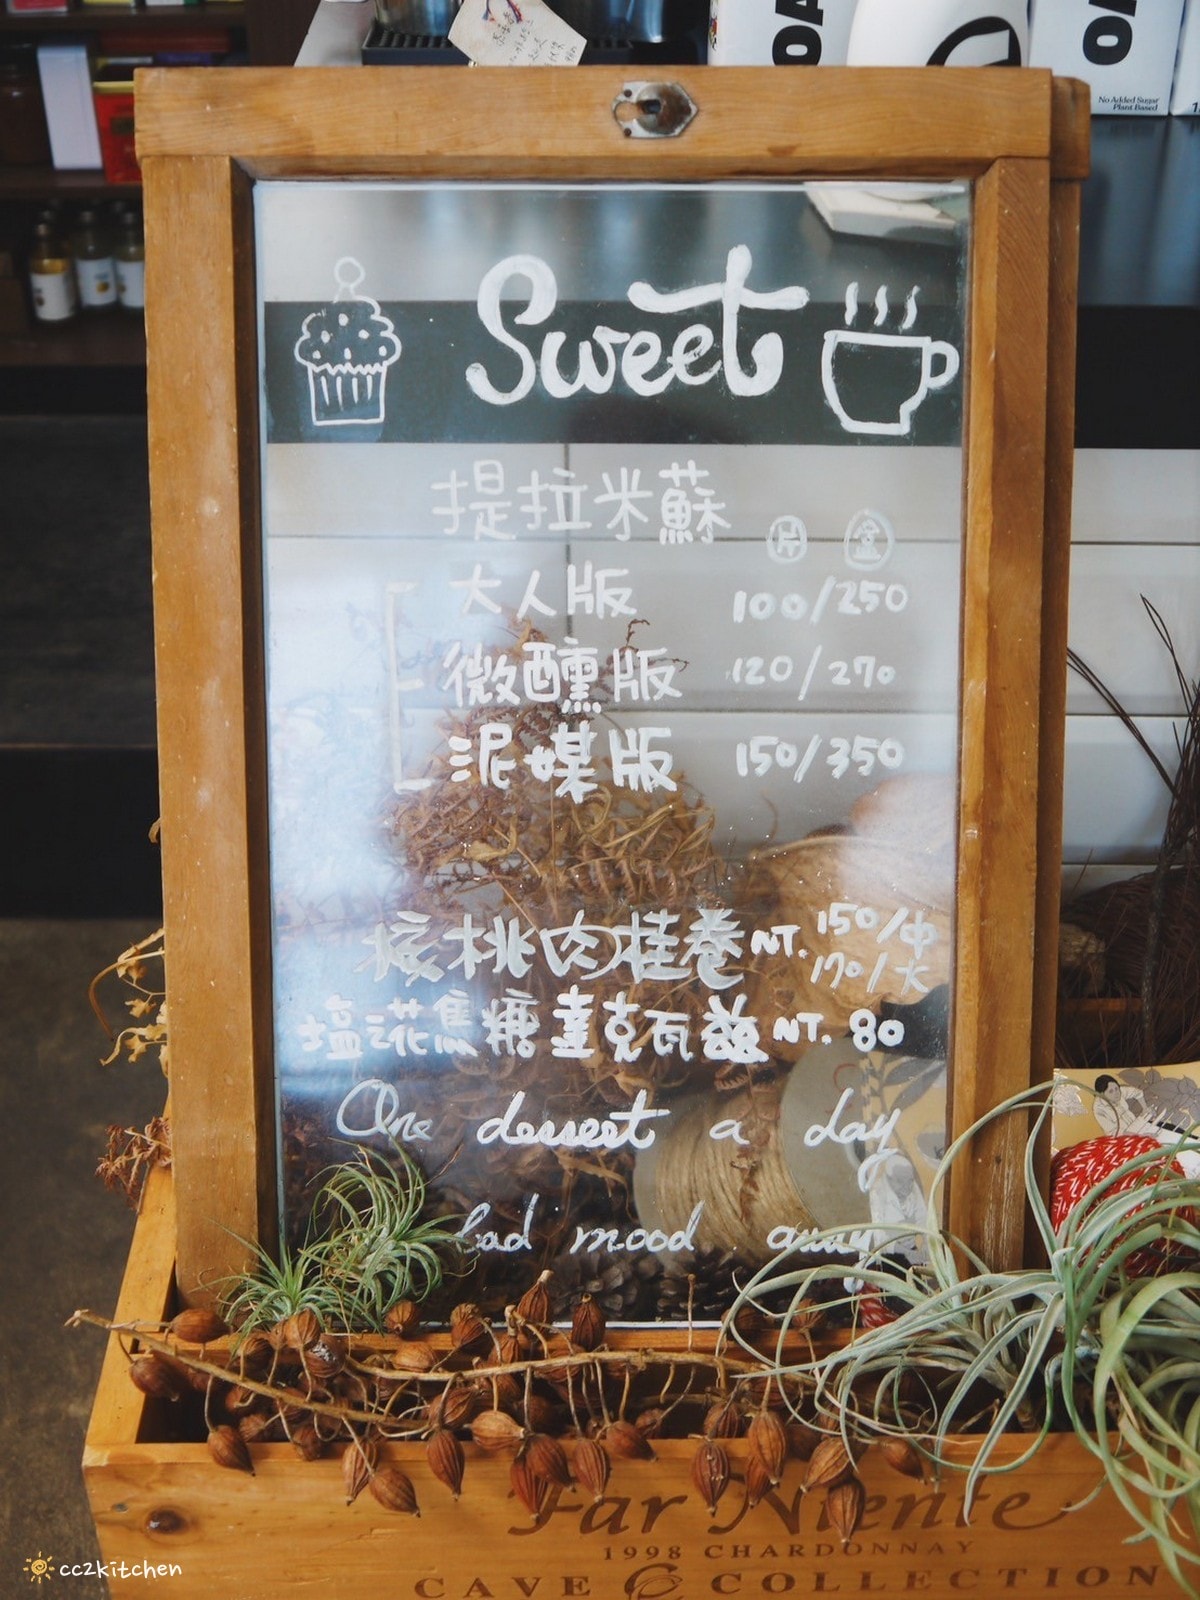 OA
OA
No Added Sugar
Plant Based
Sweet
提拉米蘇 片 盒
大人版 100/250
微醺版 120/270
泥媒版 150/350
核桃肉桂卷 NT. 150/中
170/大
塩花焦糖達克瓦茲 NT. 80
One dessert a day
bad mood away
Far Niente
1998 CHARDONNAY
CAVE COLLECTION
cc2kitchen